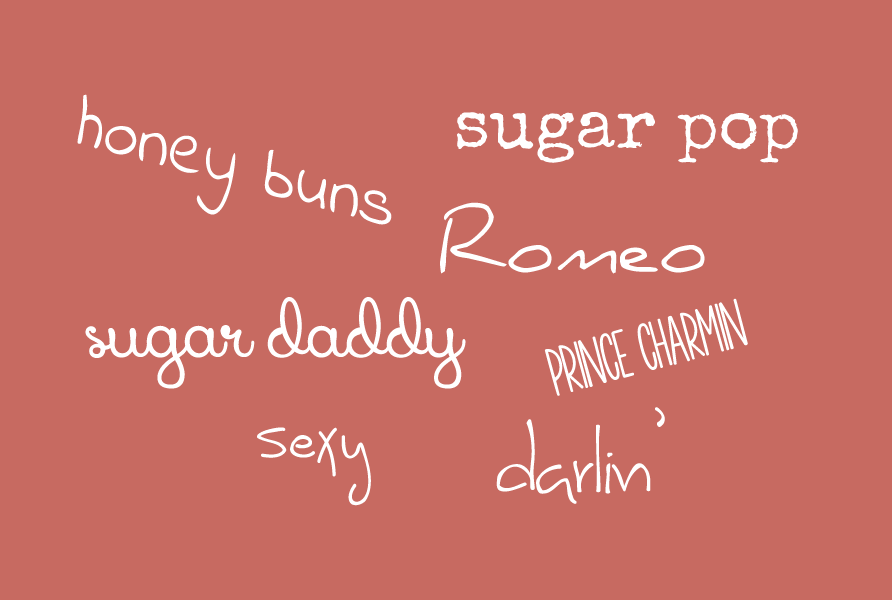 honey buns
sugar pop
Romeo
sugar daddy
PRINCE CHARMIN
sexy
darlin'